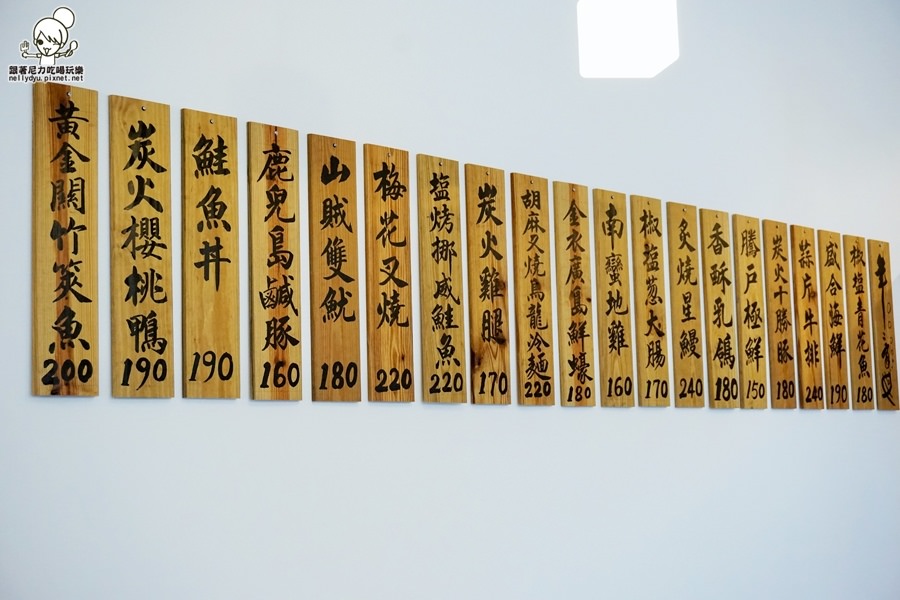 跟著尼力吃喝玩樂
nellydyu.pixnet.net
黃金關竹筴魚
200
炭火櫻桃鴨
190
鮭魚丼
190
鹿兒島鹹豚
160
山賊雙魷
180
梅花叉燒
220
塩烤挪威鮭魚
220
炭火雞腿
170
胡麻叉燒烏龍冷麵
220
金衣廣島鮮蠔
180
南蠻地雞
160
椒塩蔥大腸
170
炙燒星鰻
240
香酥乳鴿
180
騰戶極鮮
150
炭火十勝豚
180
蒜片牛排
240
盛合海鮮
190
椒塩青花魚
180